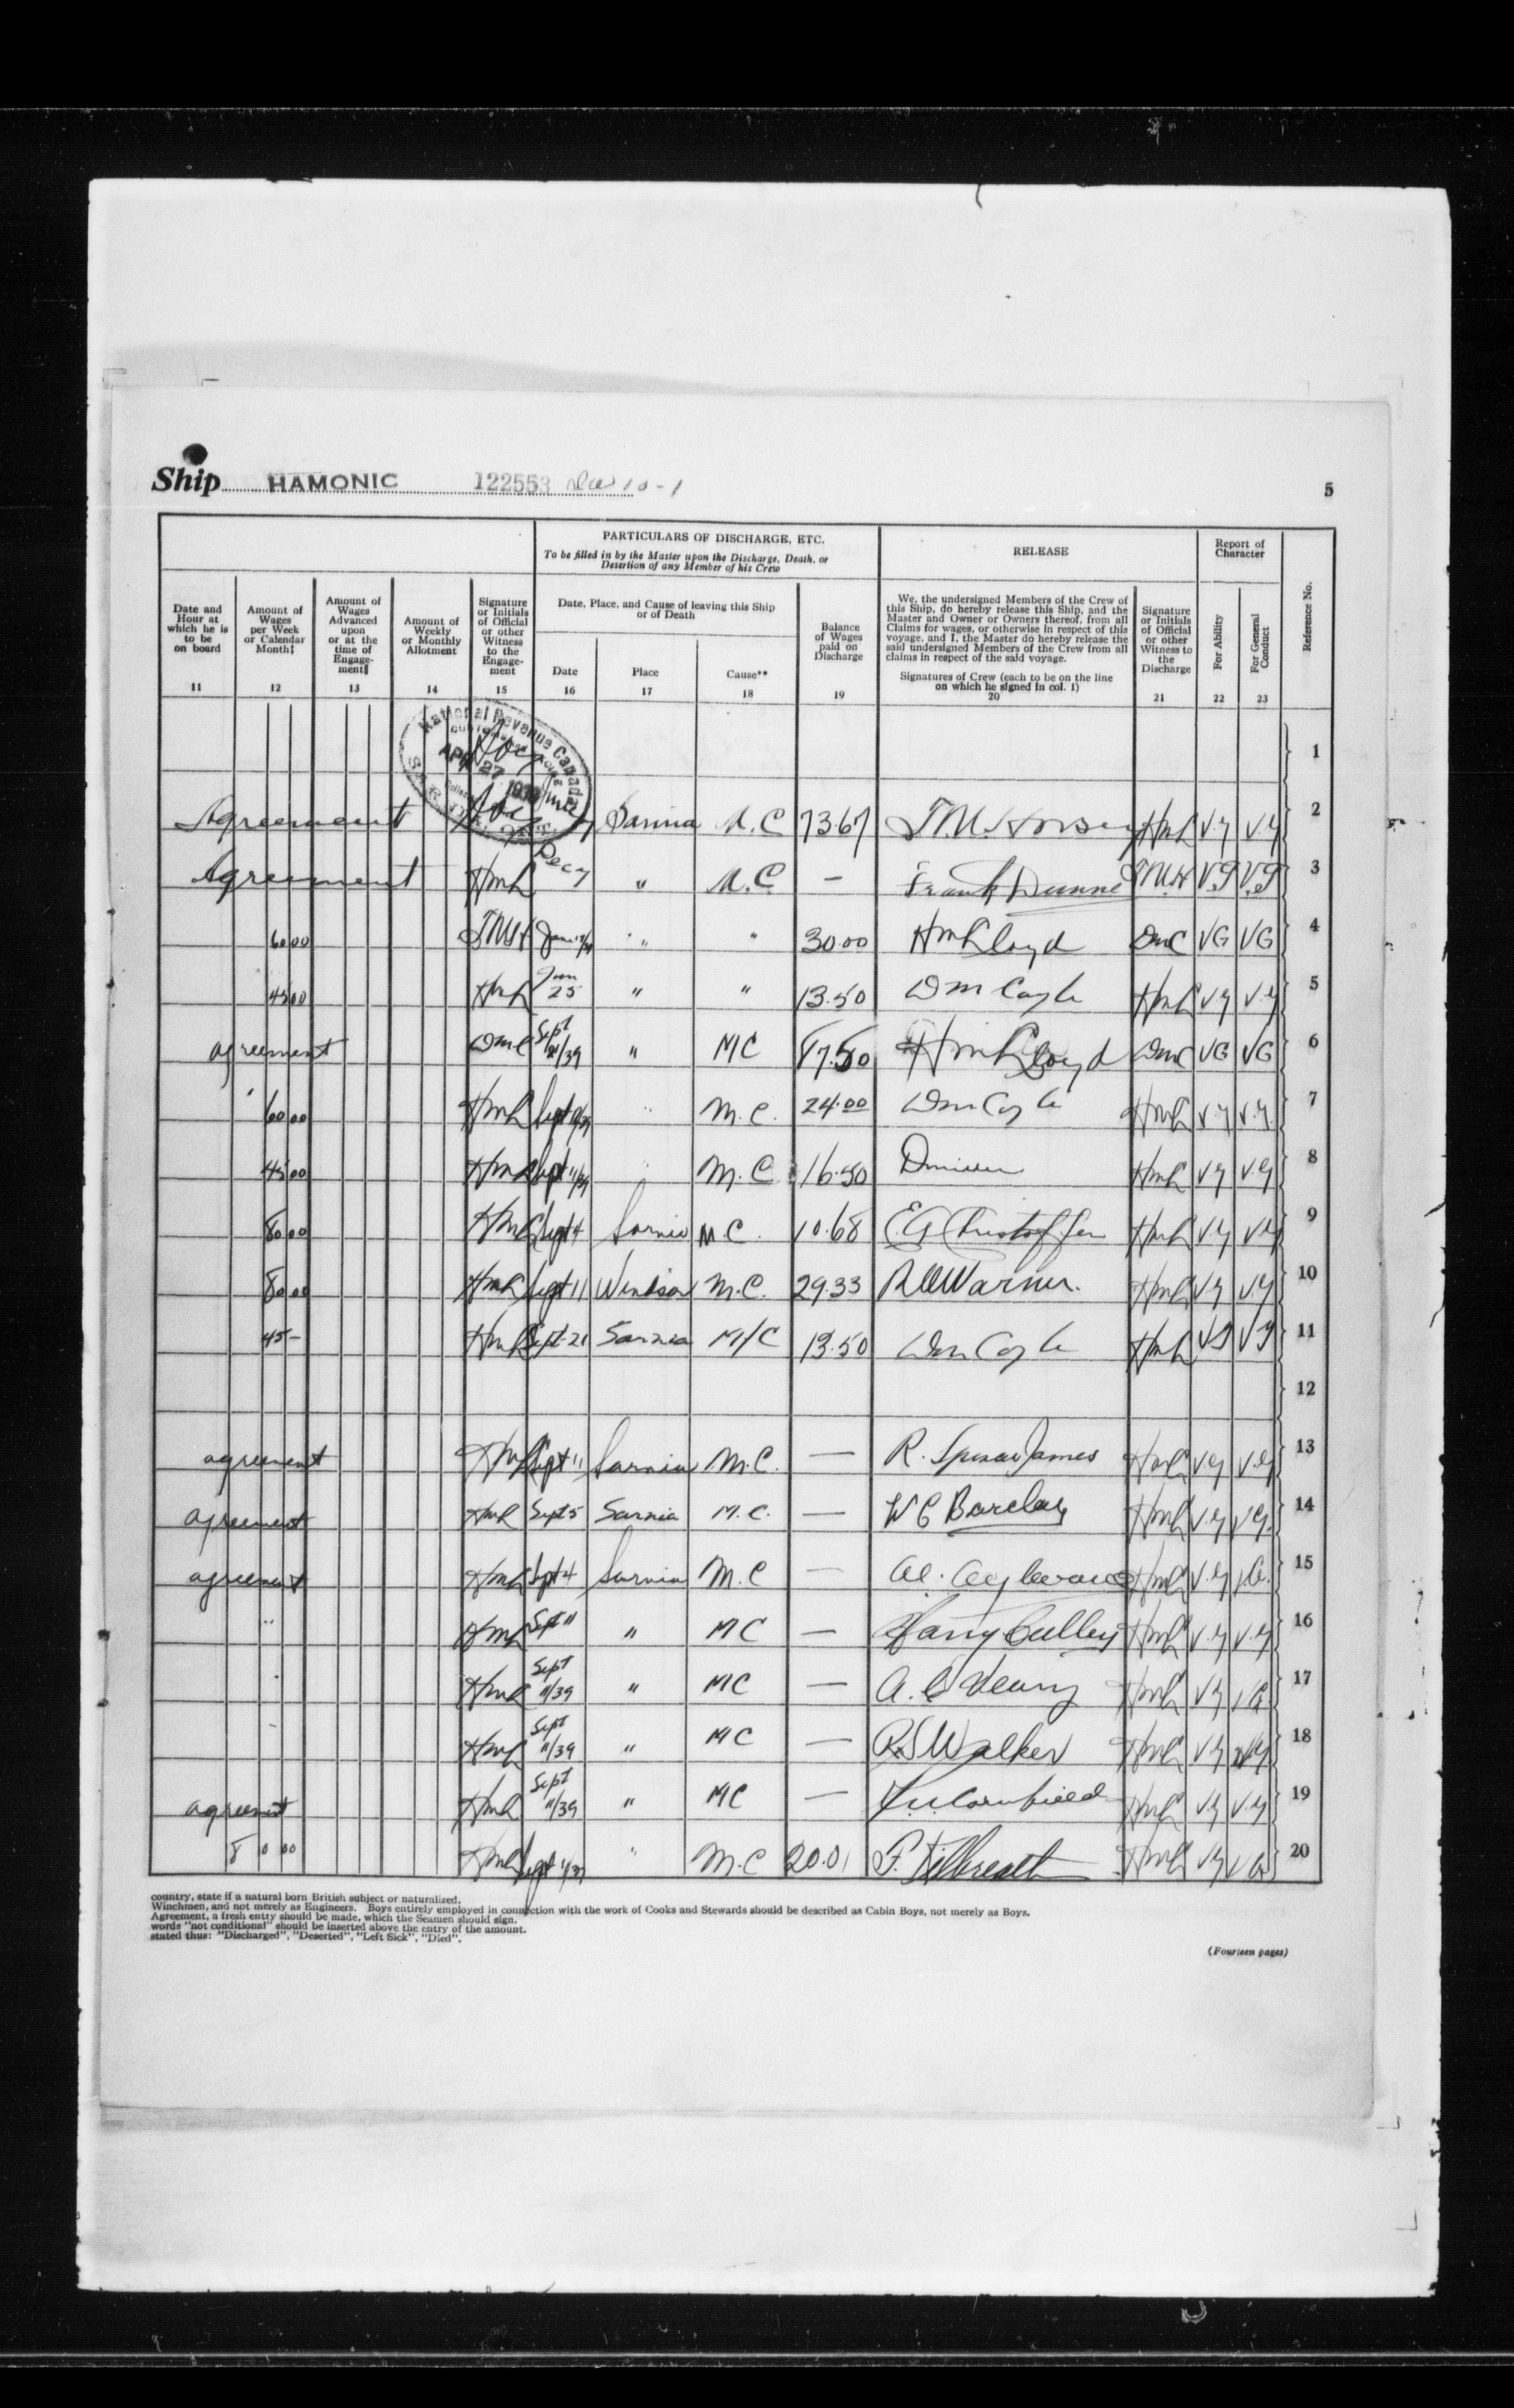 Ship HAMONIC 122553
5
PARTICULARS OF DISCHARGE, ETC.
To be filled in by the Master upon the Discharge, Death, or
Desertion of any Member of his Crew
RELEASE
Report of
Character
Reference No.
Date and
Hour at
which he is
to be
on board
11
Amount of
Wages
per Week
or Calendar
Month‡
12
Amount of
Wages
Advanced
upon
or at the
time of
Engage-
ment‖
13
Amount of
Weekly
or Monthly
Allotment
14
Signature
or Initials
of Official
or other
Witness
to the
Engage-
ment
15
Date, Place, and Cause of leaving this Ship
or of Death
Date
16
Place
17
Cause**
18
Balance
of Wages
paid on
Discharge
19
We, the undersigned Members of the Crew of
this Ship, do hereby release this Ship, and the
Master and Owner or Owners thereof, from all
Claims for wages, or otherwise in respect of this
voyage, and I, the Master do hereby release the
said undersigned Members of the Crew from all
claims in respect of the said voyage.
Signatures of Crew (each to be on the line
on which he signed in col. 1)
20
Signature
or Initials
of Official
or other
Witness to
the
Discharge
21
For Ability
22
For General
Conduct
23
National Revenue Canada
APR 27
1
Agreement Sarnia M.C 73.67 V.G V.G 2
Agreement HmL " M.C. - Frank Dunne V.G V.G 3
60 00 " " 30.00 HmLloyd DmC VG VG 4
45 00 HmL Jan 25 " " 13.50 DmCoyle HmL V.G V.G 5
agreement DmC Sept " MC HmLloyd DmC VG VG 6
60 00 HmL Sept " M.C. 24.00 DmCoyle HmL V.G V.G. 7
45 00 HmL Sept 11/39 " M.C 16.50 HmL V.G V.G 8
80 00 HmL Sept 4 Sarnia M.C. 10.68 HmL V.G V.G 9
80 00 HmL Sept 11 Windsor M.C. 29.33 Warner. HmL V.G V.G 10
45- HmL Sept 21 Sarnia M/C 13.50 DmCoyle HmL VG VG 11
12
agreement HmL Sept 11 Sarnia M.C. — R. James HmL V.G V.G 13
agreement HmL Sept 5 Sarnia M.C. — W C Barclay HmL V.G V.G. 14
agreement HmL Sept 4 Sarnia M.C — HmL V.G V.G. 15
" HmL Sept 11 " MC — Harry Culley HmL V.G V.G 16
" HmL Sept 11/39 " MC — HmL V.G V.G. 17
" HmL Sept 11/39 " MC — R.S Walker HmL V.G V.G 18
agreement HmL Sept 11/39 " MC — HmL V.G V.G 19
80 00 HmL Sept " M.C 20.01 HmL V.G V.G 20
country, state if a natural born British subject or naturalized.
Winchmen, and not merely as Engineers. Boys entirely employed in connection with the work of Cooks and Stewards should be described as Cabin Boys, not merely as Boys.
Agreement, a fresh entry should be made, which the Seamen should sign.
words "not conditional" should be inserted above the entry of the amount.
stated thus: "Discharged", "Deserted", "Left Sick", "Died".
(Fourteen pages)